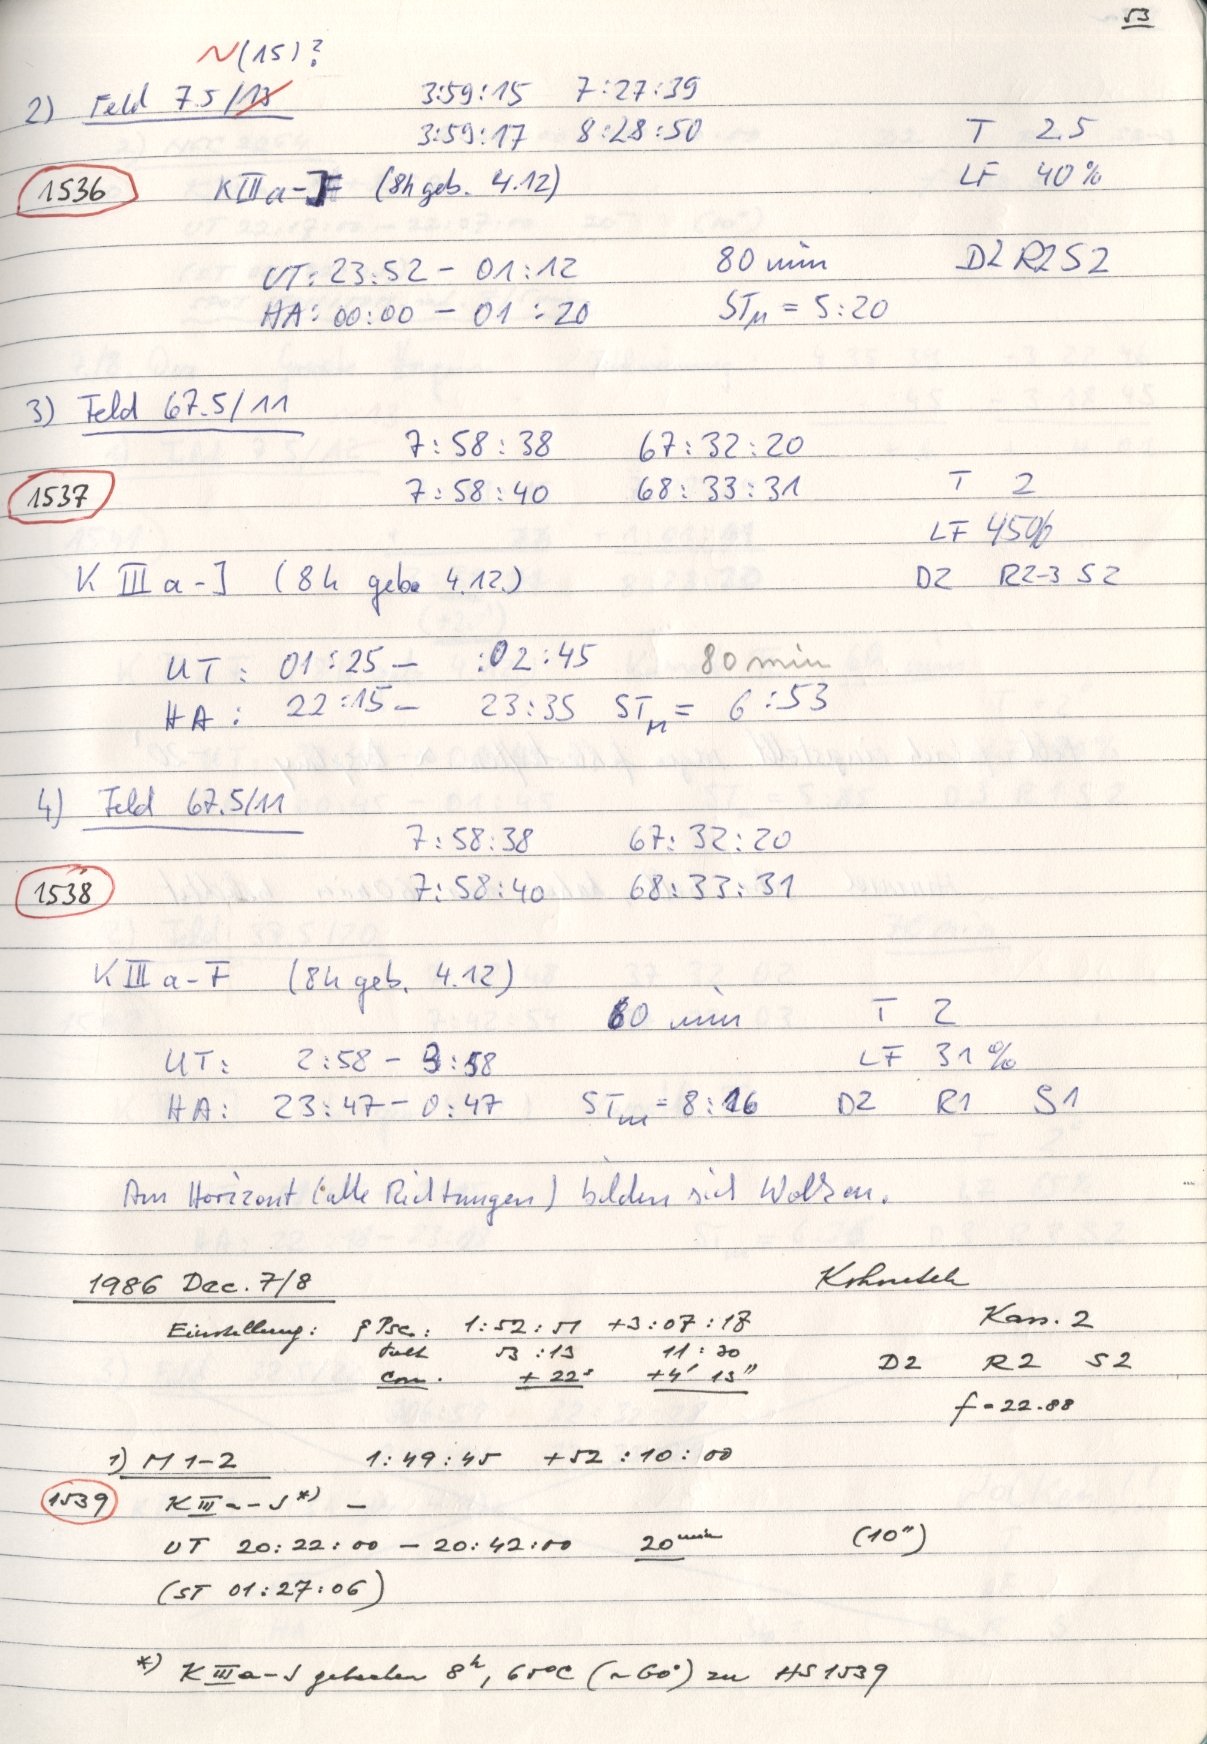 53
N(15)?
2) Feld 7.5/13 3:59:15 7:27:39
3:59:17 8:28:50 T 2.5
1536 K III a-J (8h geb. 4.12) LF 40%
UT: 23:52 - 01:12 80 min D2 R2 S2
HA: 00:00 - 01:20 STM = 5:20
3) Feld 67.5/11
7:58:38 67:32:20
1537 7:58:40 68:33:31 T 2
LF 45%
K III a-J (8h geb. 4.12.) D2 R2-3 S2
UT: 01:25 - :02:45 80 min
HA: 22:15 - 23:35 STM = 6:53
4) Feld 67.5/11
7:58:38 67:32:20
1538 7:58:40 68:33:31
K III a-F (8h geb. 4.12)
60 min T 2
UT: 2:58 - 3:58 LF 31%
HA: 23:47 - 0:47 STM = 8:16 D2 R1 S1
Am Horizont (alle Richtungen) bilden sich Wolken.
1986 Dec. 7/8
Einstellung: ξ Psc.: 1:52:51 +3:07:17 Kass. 2
53:13 11:30 D2 R2 S2
Corr. +22s +4' 13"
f = 22.88
1) M 1-2 1:49:45 +52:10:00
1539 K III a-J *) -
UT 20:22:00 - 20:42:00 20min (10")
(ST 01:27:06)
*) K III a-J gebacken 8h, 65°C (~60°) zu HS 1539